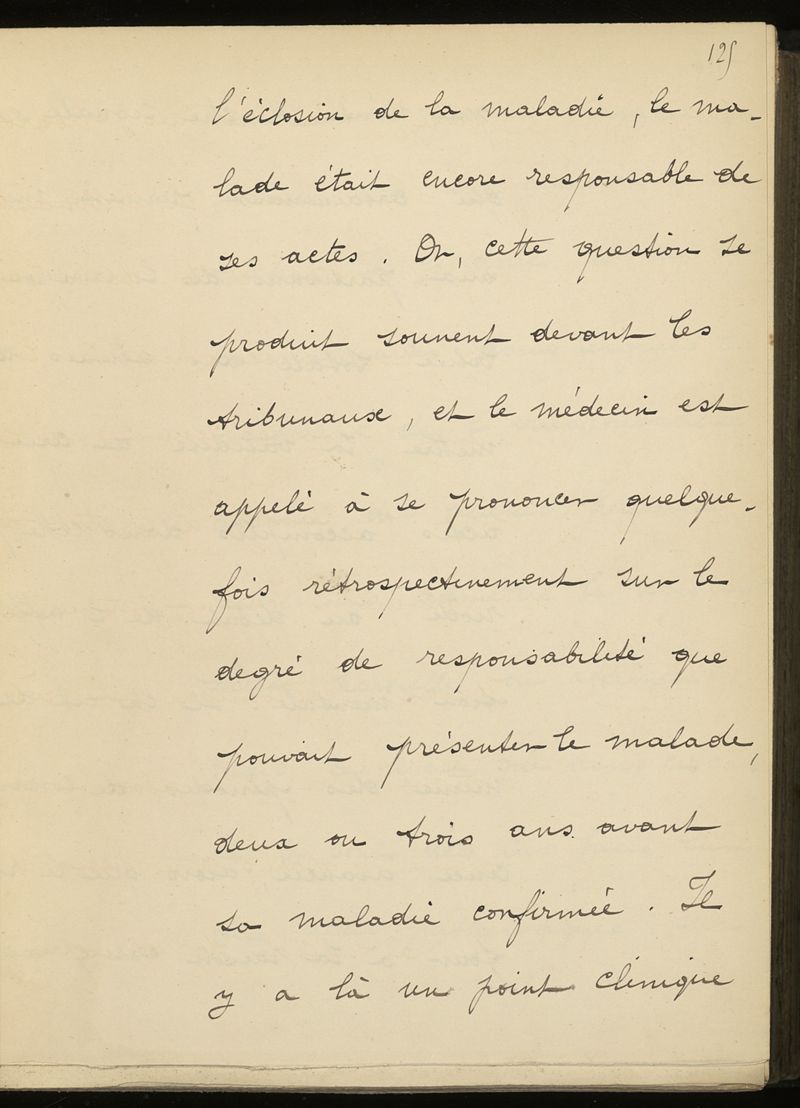 125
l'éclosion de la maladie, le ma-
lade était encore responsable de
ses actes. Or, cette question se
produit souvent devant les
tribunaux, et le médecin est
appelé à se prononcer quelque-
fois rétrospectivement sur le
degré de responsabilité que
pouvait présenter le malade,
deux ou trois ans avant
sa maladie confirmée. Il
y a là un point clinique